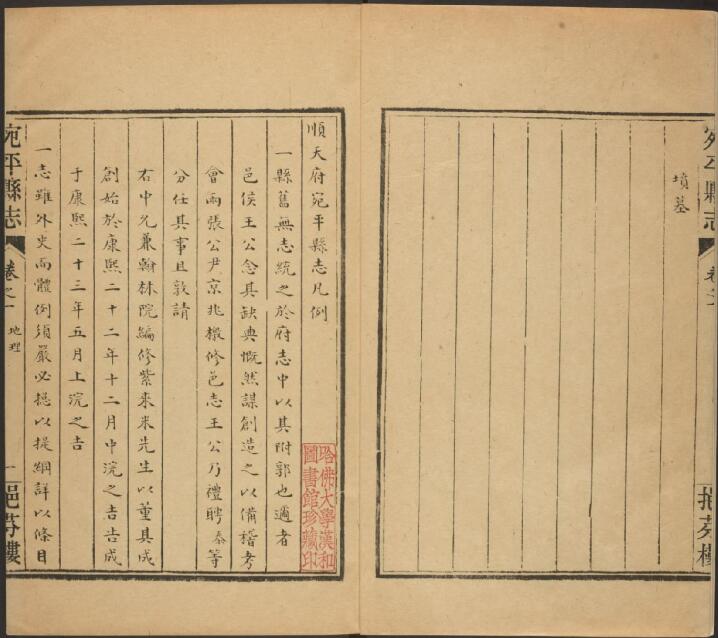 墳墓
宛平縣志
卷之
挹芬樓
順天府宛平縣志凡例
一縣舊無志統之於府志中以其附郭也邇者
邑侯王公念其缺典慨然謀創造之以備稽考
會兩張公尹京兆檄修邑志王公乃禮聘泰等
分任其事且敦請
右中允兼翰林院編修紫來米先生以董其成
創始於康熙二十二年十二月中浣之吉告成
于康熙二十三年五月上浣之吉
一志雖外史而體例須嚴必總以提綱詳以條目
哈佛大學漢和
圖書館珍藏印
宛平縣志
卷之一
地理
一
挹芬樓